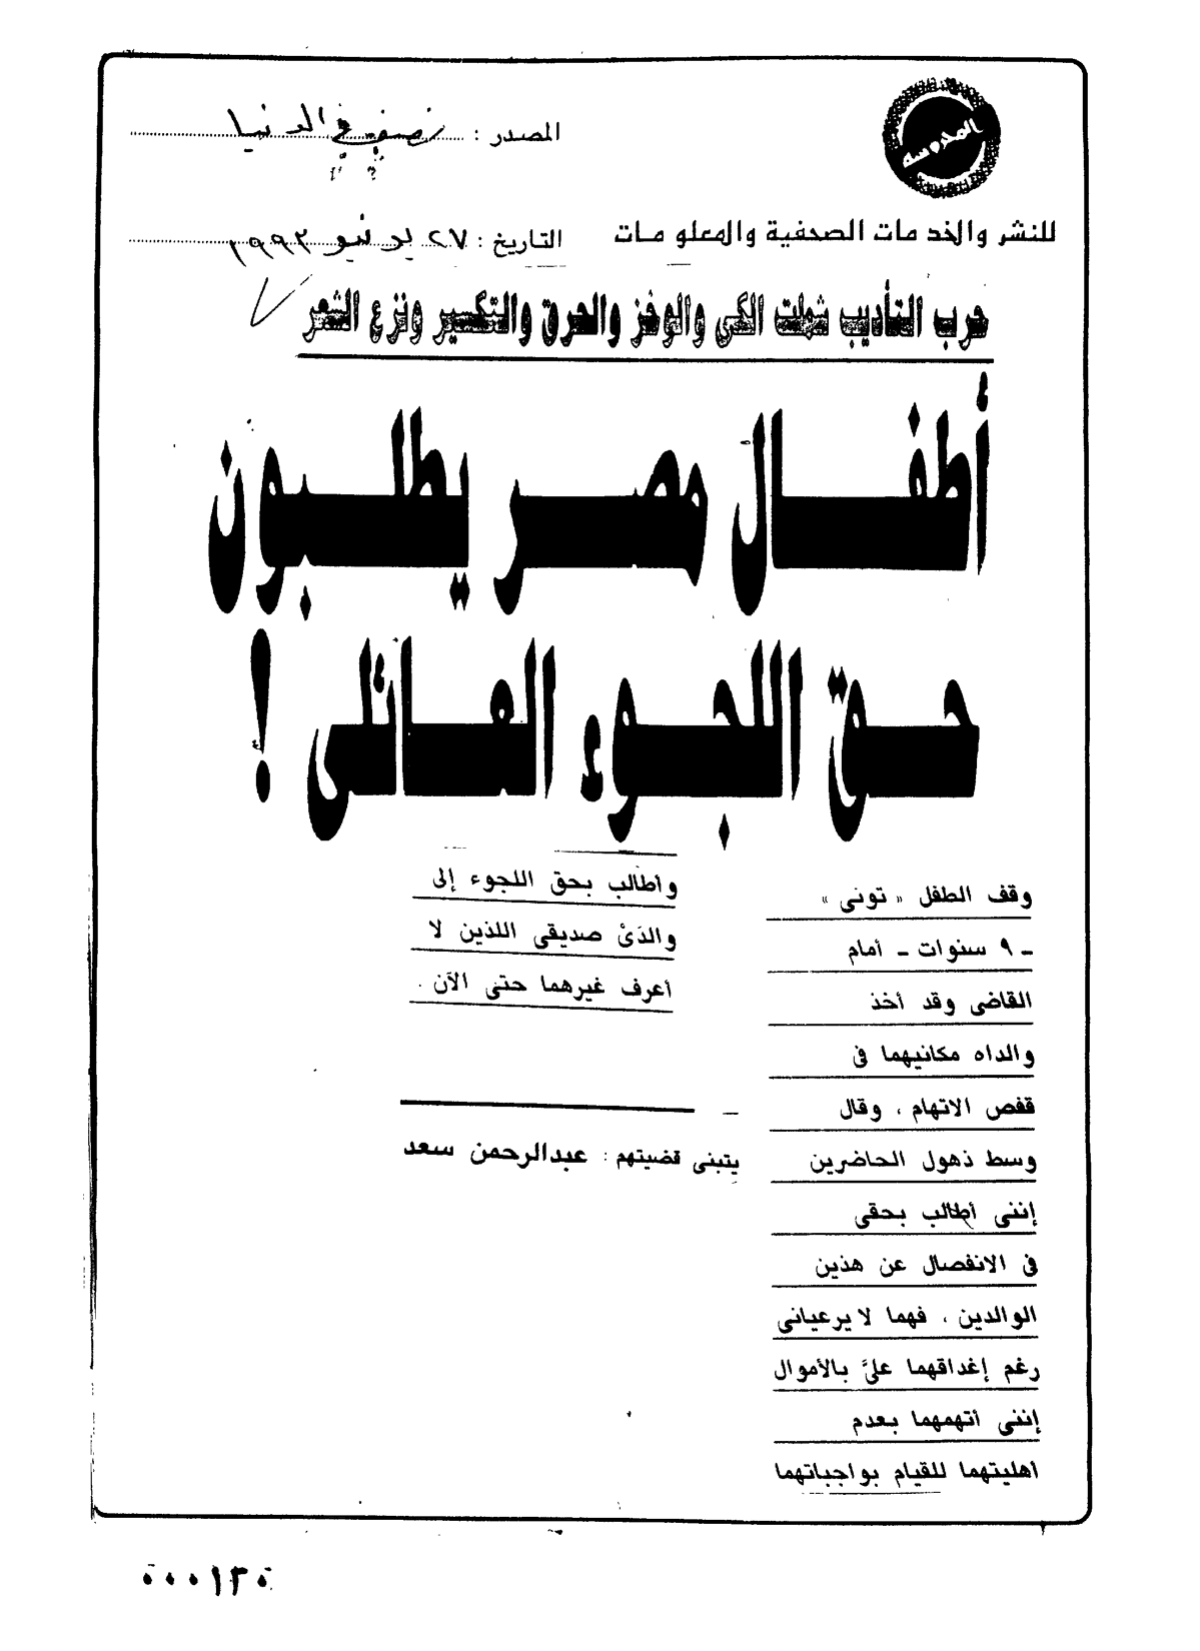 المحروسة
المصدر : نصف الدنيا
للنشر والخدمات الصحفية والمعلومات
التاريخ : ٢٧ يونيو ١٩٩٣
حرب التأديب شملت الكى والوخز والحرق والتكسير ونزع الشعر
أطفال مصر يطلبون
حق اللجوء العائلى !
وقف الطفل « تونى »
ـ ٩ سنوات ـ أمام
القاضى وقد أخذ
والداه مكانيهما فى
قفص الاتهام ، وقال
وسط ذهول الحاضرين
إننى أطالب بحقى
فى الانفصال عن هذين
الوالدين ، فهما لا يرعيانى
رغم إغداقهما علىَّ بالأموال
إننى أتهمهما بعدم
أهليتهما للقيام بواجباتهما
وأطالب بحق اللجوء إلى
والدَىْ صديقى اللذين لا
أعرف غيرهما حتى الآن .
يتبنى قضيتهم : عبدالرحمن سعد